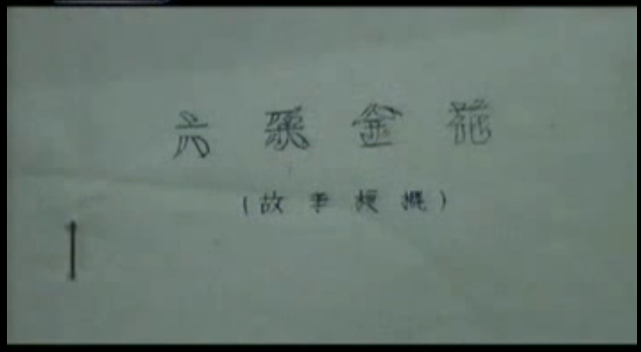 六朵金花
(故事梗概)